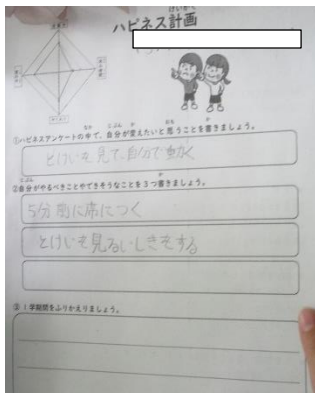 ハピネス計画
けいかく
①ハピネスアンケートの中で、自分が変えたいと思うことを書きましょう。
とけいを見て、自分で動く
②自分がやるべきことやできそうなことを3つ書きましょう。
5分前に席につく
とけいを見るいしきをする
③1学期間をふりかえりましょう。